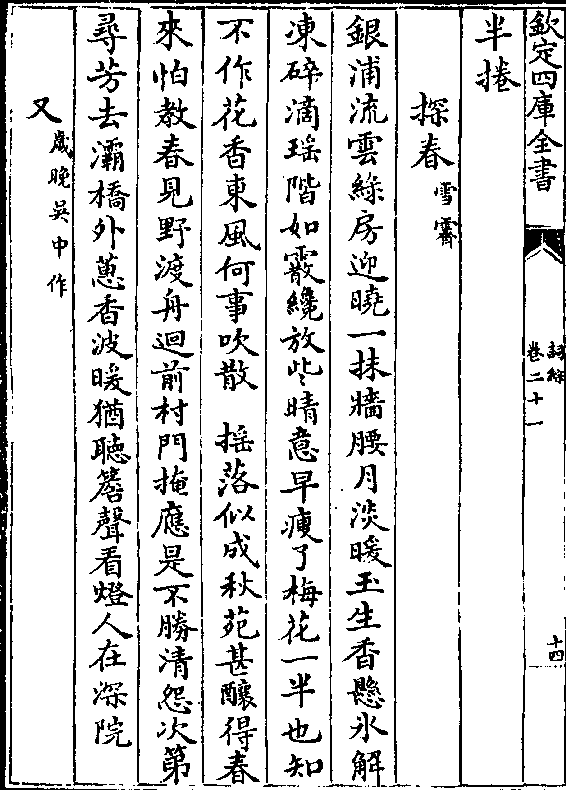 欽定四庫全書
詞綜
卷二十一
十四
半捲
探春 雪霽
銀浦流雲綠房迎曉一抹牆腰月淡暖玉生香懸氷解
凍碎滴瑶階如霰纔放些晴意早瘦了梅花一半也知
不作花香東風何事吹散　揺落似成秋苑甚釀得春
來怕教春見野渡舟迴前村門掩應是不勝清怨次第
尋芳去灞橋外蕙香波暖猶聽簷聲看燈人在深院
又 歲晚吳中作